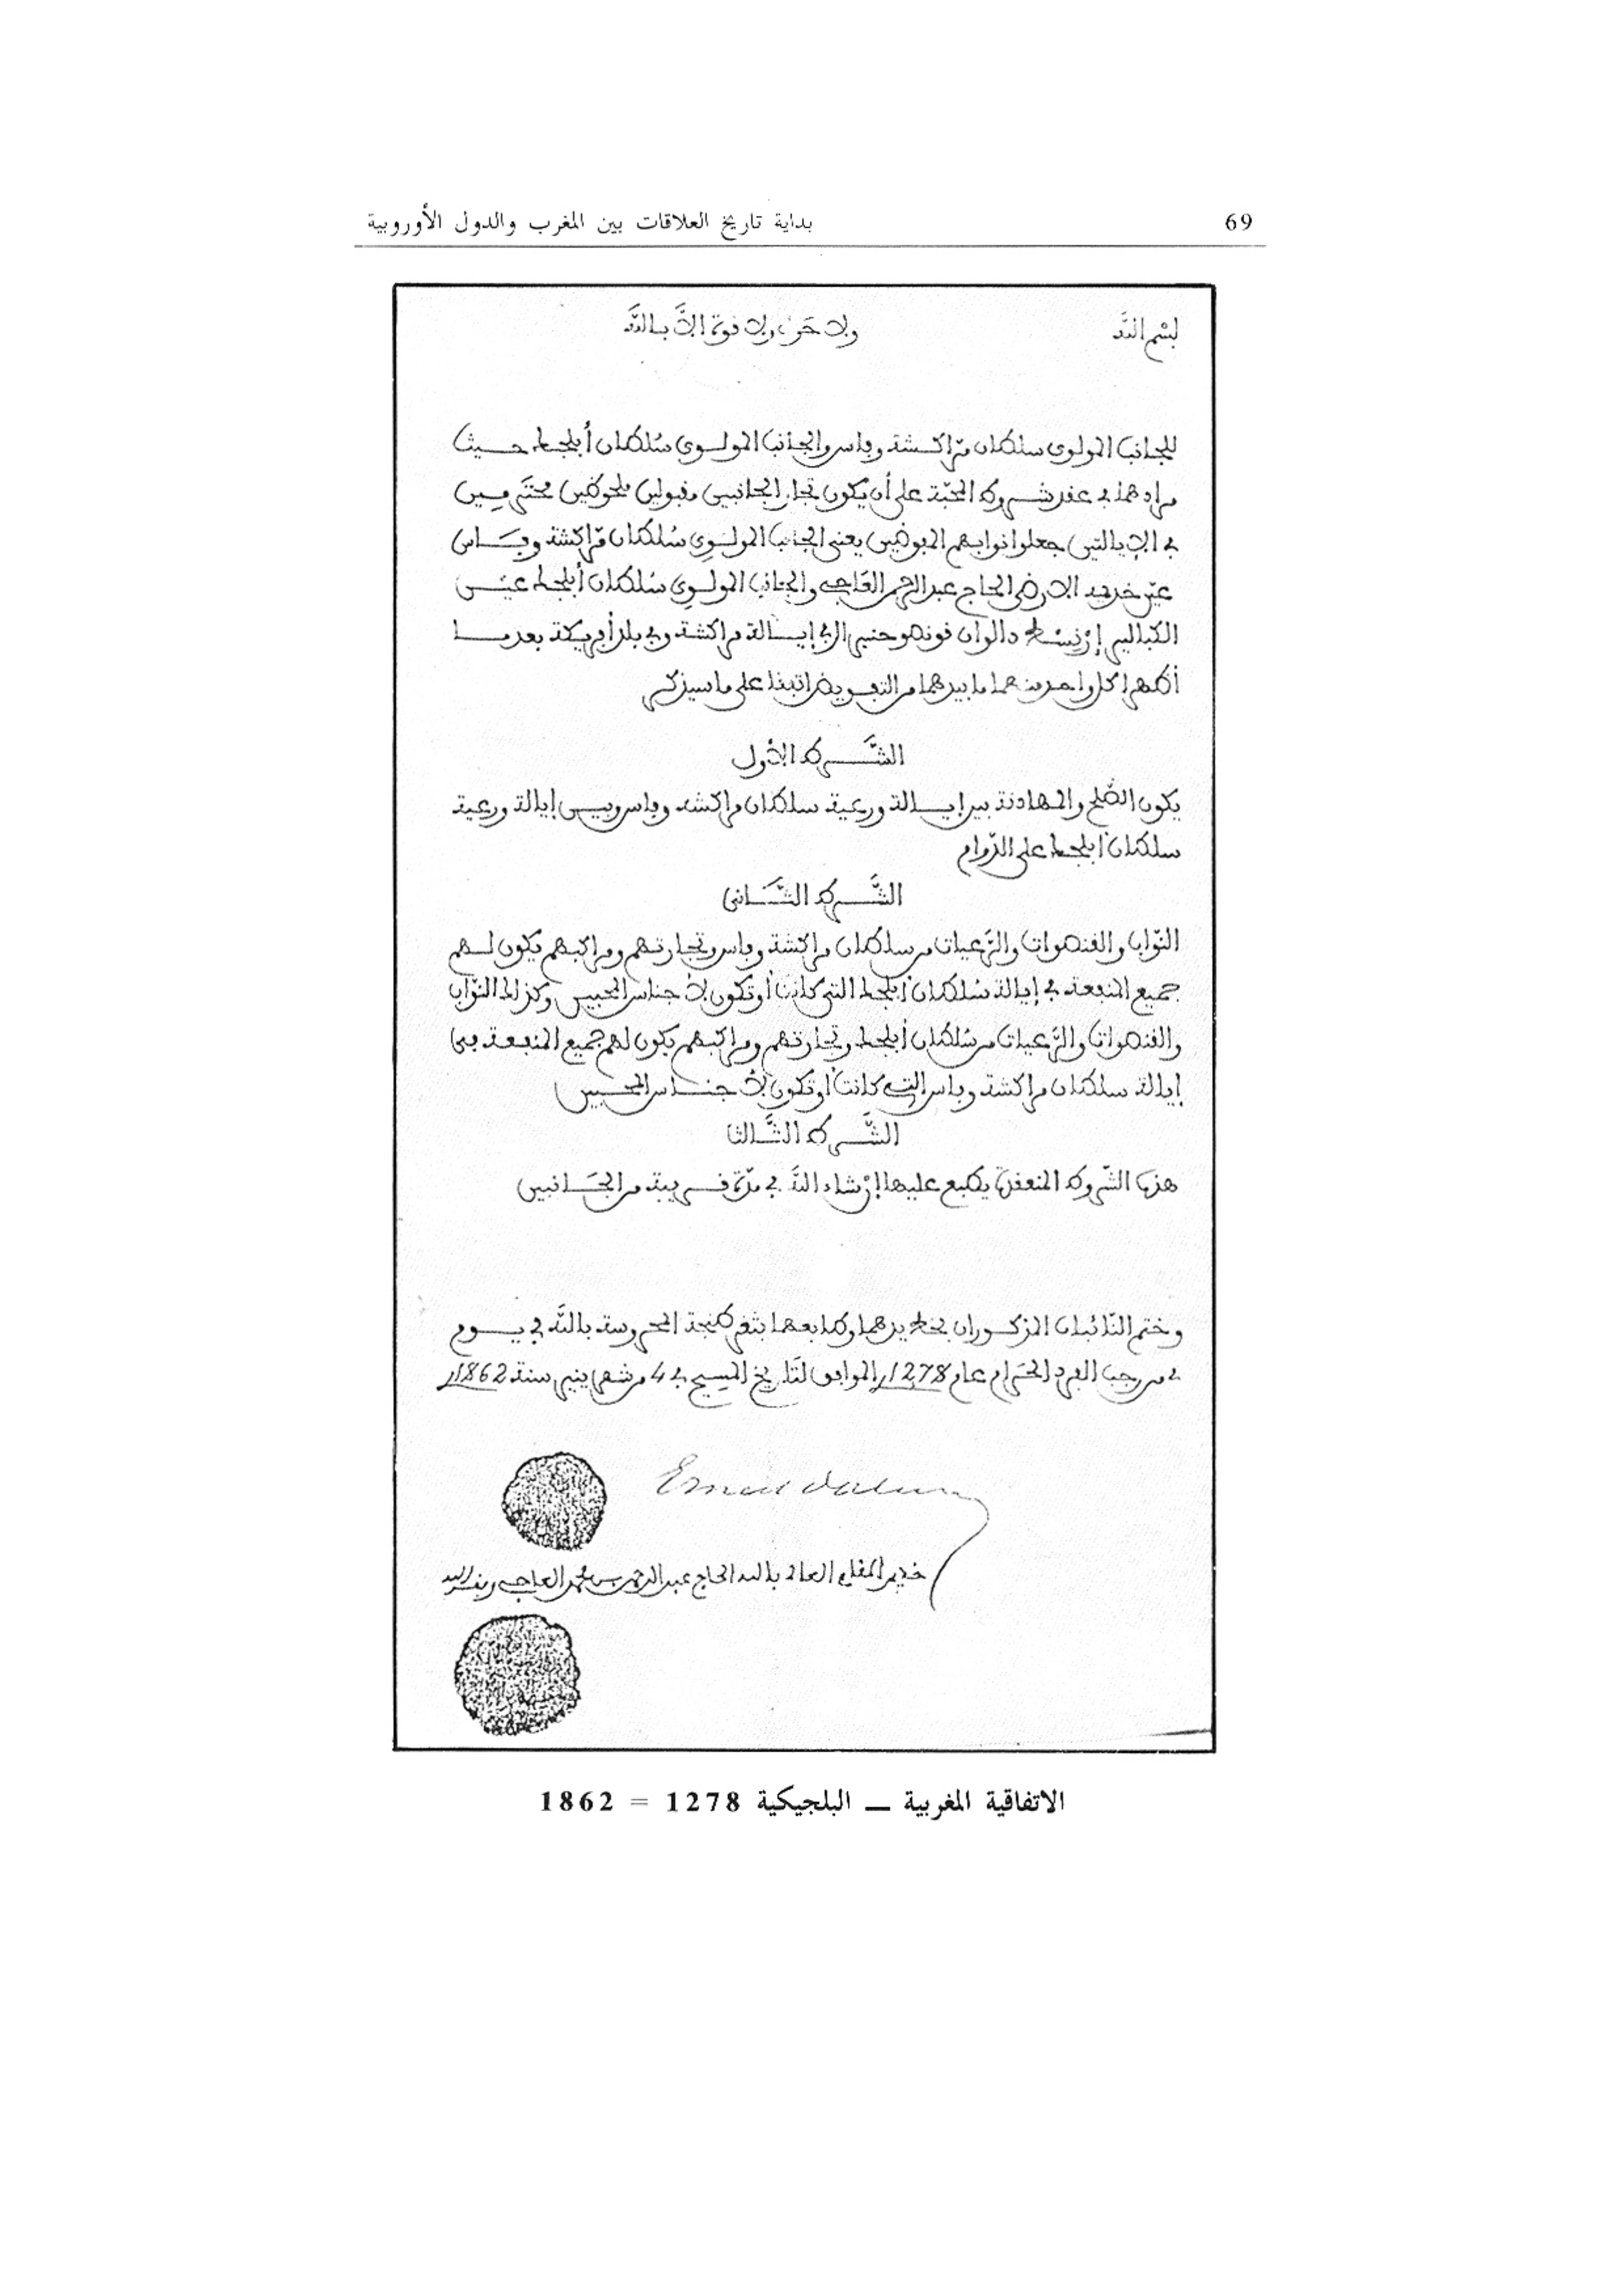 بداية تاريخ العلاقات بين المغرب والدول الأوروبية 69
بسم الله ولا حول ولا قوة إلا بالله
للجانب المولوي سلطان مراكشة وفاس والجانب المولوي سلطان أبلجك حيث
مرادهما في عقد شروط المحبة على أن يكون تجار الجانبين مقبولين ملحوظين محترمين
في الإيالتين جعلوا نوابهم المفوضين يعني الجانب المولوي سلطان مراكشة وفاس
عين خديمه الأرضى الحاج عبد الرحمن العاجي والجانب المولوي سلطان أبلجك عين
الكبالير إرنست دالوان قونصو جنير إلى إيالة مراكشة وفي بلد أفريكة بعد ما
أظهرا كل واحد منهما ما بيدهما من التفويض اتفقا على ما سيذكر
الشرط الأول
يكون الصلح والمهادنة بين إيالة ورعية سلطان مراكشة وفاس وبين إيالة ورعية
سلطان أبلجك على الدوام
الشرط الثاني
النواب والقنصوات والرعيات من سلطان مراكشة وفاس وتجارتهم ومراكبهم يكون لهم
جميع المنفعة في إيالة سلطان أبلجك التي كانت أو تكون لأجناس المحبين وكذلك النواب
والقنصوات والرعيات من سلطان أبلجك وتجارتهم ومراكبهم يكون لهم جميع المنفعة في
إيالة سلطان مراكشة وفاس التي كانت أو تكون لأجناس المحبين
الشرط الثالث
هذه الشروط المنعقدة يطبع عليها إن شاء الله في مدة قريبة من الجانبين
وختم النائبان المذكوران بخط يدهما وطابعهما بثغر طنجة المحروسة بالله في يوم
من رجب الفرد الحرام عام 1278 الموافق لتاريخ المسيح في 4 من شهر ينير سنة 1862
Ernest Daluin
خديم المقام العالي بالله الحاج عبد الرحمن بن محمد العاجي وفقه الله
الاتفاقية المغربية — البلجيكية 1278 = 1862